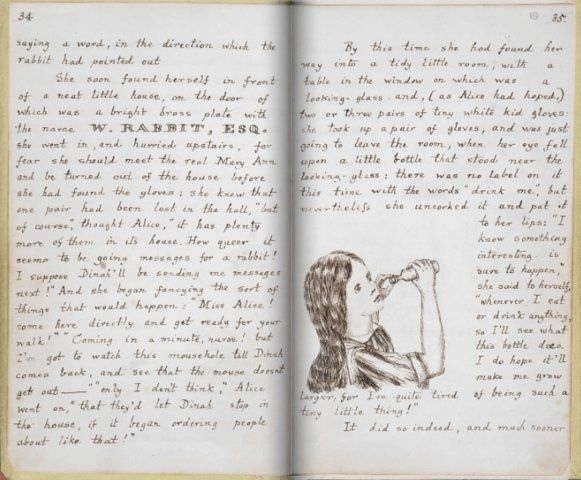 34
saying a word, in the direction which the
rabbit had pointed out
She soon found herself in front
of a neat little house, on the door of
which was a bright brass plate with
the name W. RABBIT, ESQ.
she went in, and hurried upstairs, for
fear she should meet the real Mary Ann
and be turned out of the house before
she had found the gloves: she knew that
one pair had been lost in the hall, "but
of course," thought Alice, "it has plenty
more of them in its house. How queer it
seems to be going messages for a rabbit!
I suppose Dinah'll be sending me messages
next!" And she began fancying the sort of
things that would happen: "Miss Alice!
come here directly and get ready for your
walk!" "Coming in a minute, nurse! but
I've got to watch this mousehole till Dinah
comes back, and see that the mouse doesn't
get out——" "only I don't think," Alice
went on, "that they'd let Dinah stop in
the house, if it began ordering people
about like that!"
19 35
By this time she had found her
way into a tidy little room, with a
table in the window on which was a
looking-glass and, (as Alice had hoped,)
two or three pairs of tiny white kid gloves:
she took up a pair of gloves, and was just
going to leave the room, when her eye fell
upon a little bottle that stood near the
looking-glass: there was no label on it
this time with the words "drink me", but
nevertheless she uncorked it and put it
to her lips: "I
know something
interesting is
sure to happen,"
she said to herself,
"whenever I eat
or drink anything,
so I'll see what
this bottle does.
I do hope it'll
make me grow
larger, for I'm quite tired of being such a
tiny little thing!"
It did so indeed, and much sooner